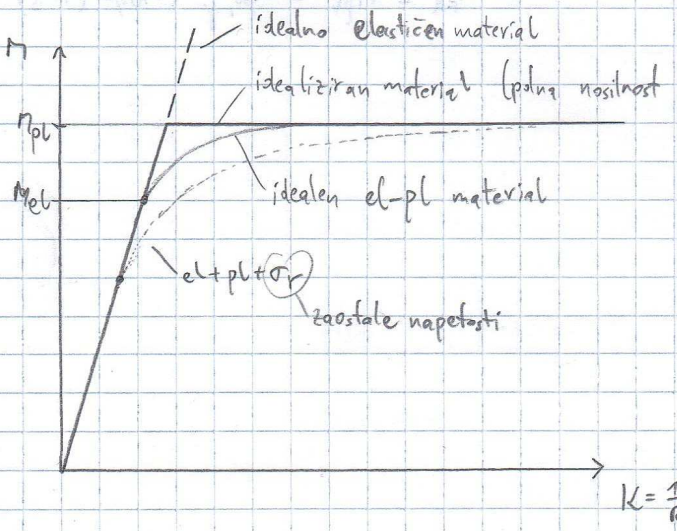 idealno elastičen material
M
idealiziran material (polna nosilnost
Mpl
Mel
idealen el-pl material
el+pl+σr
zaostale napetosti
K = 1